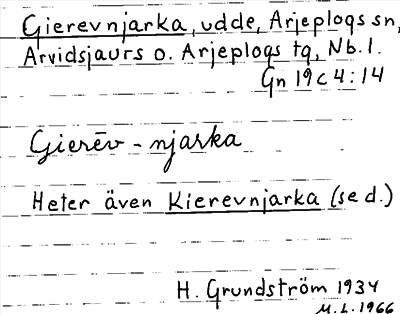 Gierevnjarka, udde, Arjeplogs sn,
Arvidsjaurs o. Arjeplogs tg, Nb. l.
Gn 19c4:14
Gierēv - njarka
Heter även Kierevnjarka (se d.)
H. Grundström 1934
M. L. 1966